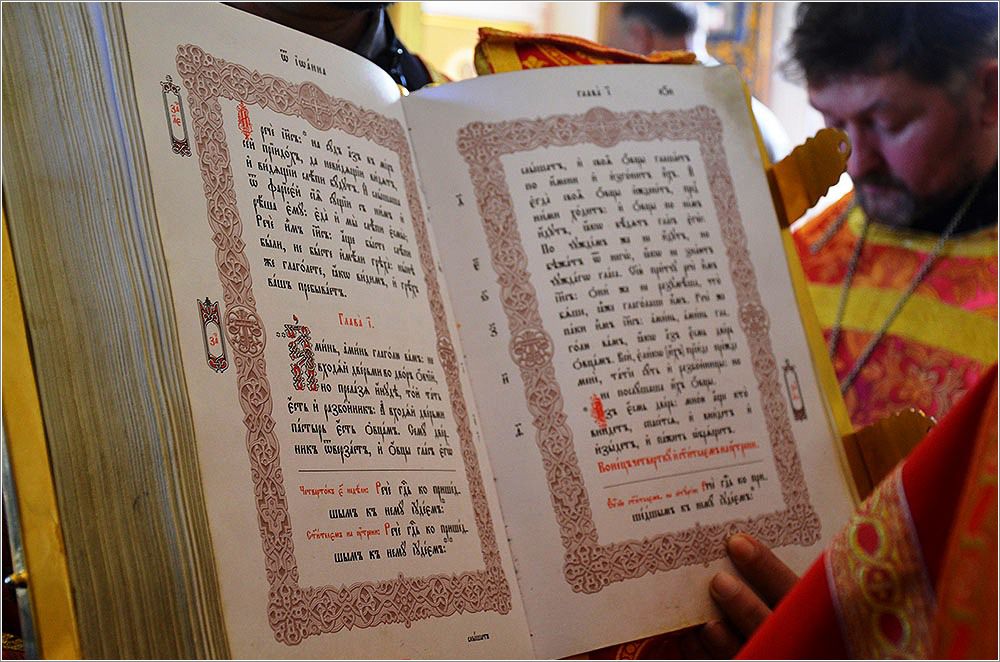 Ѿ Іѡа́нна
За҄
Речѐ і҆и҃съ: на сꙋ́дъ а҆́зъ въ мі́ръ
се́й прїидо́хъ, да неви́дѧщїи ви́дѧтъ,
и҆ ви́дѧщїи слѣ́пи бꙋ́дꙋтъ. И҆ слы́шаша
ѿ фарїсє́й сїѧ̑ сꙋ́щїи съ ни́мъ и҆
рѣ́ша є҆мꙋ̀: є҆да̀ и҆ мы̀ слѣ́пи є҆смы̀;
Речѐ и҆̀мъ і҆и҃съ: а҆́ще бы́сте слѣ́пи
бы́ли, не бы́сте и҆мѣ́ли грѣха̀: ны́нѣ
же глаго́лете, ꙗ҆́кѡ ви́димъ, и҆ грѣ́хъ
ва́шъ пребыва́етъ.
Глава̀ і҃.
За҄
А҆ми́нь, а҆ми́нь глаго́лю ва́мъ: не
входѧ́й две́рьми во дво́ръ ѻ҆́вчїй,
но прела́зѧ и҆нꙋ́дѣ, то́й та́ть
є҆́сть и҆ разбо́йникъ: А҆ входѧ́й две́рьми
па́стырь є҆́сть ѻ҆вца́мъ. Семꙋ̀ две́р-
никъ ѿверза́етъ, и҆ ѻ҆́вцы гла́съ є҆гѡ̀
Четверто́къ є҃ недѣ́ли: Речѐ гдⷭ҇ь ко прише́д-
шымъ къ немꙋ̀ і҆ꙋде́ємъ:
Ст҃и́телємъ на ᲂу҆́трени: Речѐ гдⷭ҇ь ко прише́д-
шымъ къ немꙋ̀ і҆ꙋде́ємъ:
слы́шатъ
Глава̀ і҃.
слы́шатъ, и҆ своѧ̑ ѻ҆́вцы глаша́етъ
по и҆́мени и҆ и҆зго́нитъ и҆̀хъ. И҆
є҆гда̀ своѧ̑ ѻ҆́вцы и҆ждене́тъ, пред̾
ни́ми хо́дитъ: и҆ ѻ҆́вцы по не́мъ
и҆́дꙋтъ, ꙗ҆́кѡ вѣ́дѧтъ гла́съ є҆гѡ̀:
По чꙋжде́мъ же не и҆́дꙋтъ, но
бѣжа́тъ ѿ негѡ̀, ꙗ҆́кѡ не зна́ютъ
чꙋжда́гѡ гла́са. Сїю̀ при́тчꙋ речѐ и҆̀мъ
і҆и҃съ: Ѻ҆ни́ же не разꙋмѣ́ша, что̀
бѧ́ше, ꙗ҆̀же глаго́лаше и҆̀мъ. Рече́ же
па́ки и҆̀мъ і҆и҃съ: а҆ми́нь, а҆ми́нь гла-
го́лю ва́мъ, ꙗ҆́кѡ а҆́зъ є҆́смь две́рь
ѻ҆вца́мъ. Всѝ, є҆ли́кѡ и҆́хъ прїи́де пре́жде
менє̀, та́тїе сꙋ́ть и҆ разбо́йницы: но
не послꙋ́шаша и҆́хъ ѻ҆́вцы.
А҆́зъ є҆́смь две́рь: мно́ю а҆́ще кто̀
вни́детъ, спасе́тсѧ, и҆ вни́детъ и҆
и҆зы́детъ, и҆ па́жить ѡ҆брѧ́щетъ.
Коне́цъ четверткꙋ̀ и҆ ст҃и́телємъ на ᲂу҆́трени.
Ст҃и́телємъ, на лїтꙋргі́и: Речѐ гдⷭ҇ь ко при-
ше́дшымъ къ немꙋ̀ і҆ꙋде́ємъ: